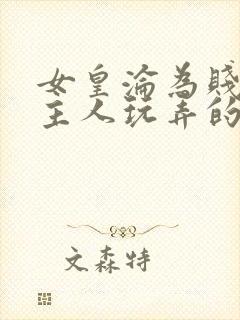 女皇淪為賤
主人玩弄的
文森特